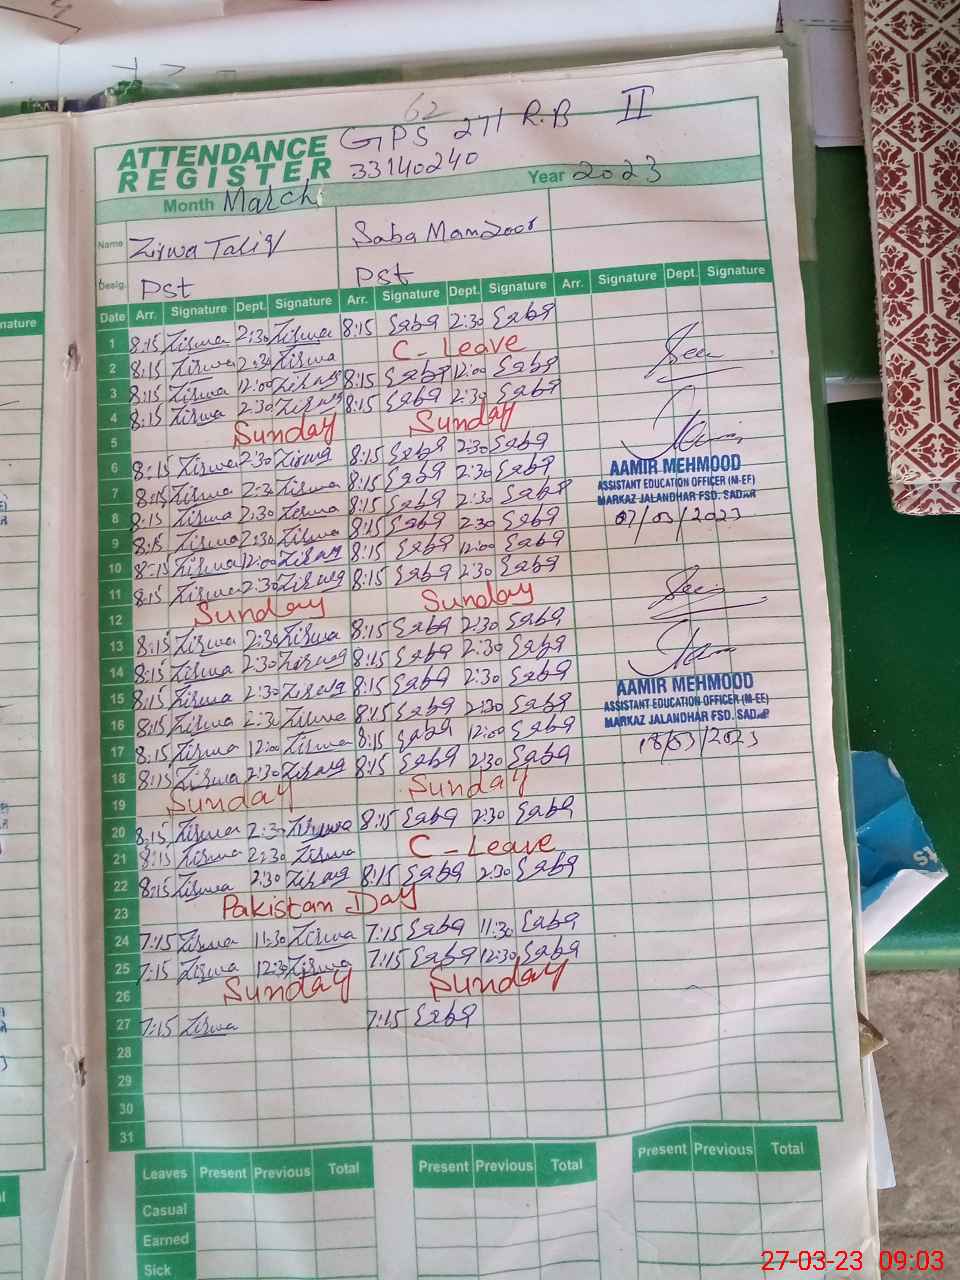 62
ATTENDANCE REGISTER GPS 271 R.B II
33140240
Month March Year 2023
Name Saba Manzoor
Desig. Pst Pst
Date Arr. Signature Dept. Signature Arr. Signature Dept. Signature Arr. Signature Dept. Signature
1 8:15 Zirwa 2:30 Zirwa 8:15 Saba 2:30 Saba
2 8:15 Zirwa 2:30 Zirwa C-Leave
3 8:15 Zirwa 12:00 Zirwa 8:15 Saba 12:00 Saba
4 8:15 Zirwa 2:30 Zirwa 8:15 Saba 2:30 Saba
5 Sunday Sunday
6 8:15 Zirwa 2:30 Zirwa 8:15 Saba 2:30 Saba
7 8:15 Zirwa 2:30 Zirwa 8:15 Saba 2:30 Saba
8 8:15 Zirwa 2:30 Zirwa 8:15 Saba 2:30 Saba
9 8:15 Zirwa 2:30 Zirwa 8:15 Saba 2:30 Saba
10 8:15 Zirwa 12:00 Zirwa 8:15 Saba 12:00 Saba
11 8:15 Zirwa 2:30 Zirwa 8:15 Saba 2:30 Saba
12 Sunday Sunday
13 8:15 Zirwa 2:30 Zirwa 8:15 Saba 2:30 Saba
14 8:15 Zirwa 2:30 Zirwa 8:15 Saba 2:30 Saba
15 8:15 Zirwa 2:30 Zirwa 8:15 Saba 2:30 Saba
16 8:15 Zirwa 2:30 Zirwa 8:15 Saba 2:30 Saba
17 8:15 Zirwa 12:00 Zirwa 8:15 Saba 12:00 Saba
18 8:15 Zirwa 2:30 Zirwa 8:15 Saba 2:30 Saba
19 Sunday Sunday
20 8:15 Zirwa 2:30 Zirwa 8:15 Saba 2:30 Saba
21 8:15 Zirwa 2:30 Zirwa C-Leave
22 8:15 Zirwa 2:30 Zirwa 8:15 Saba 2:30 Saba
23 Pakistan Day
24 7:15 Zirwa 11:30 Zirwa 7:15 Saba 11:30 Saba
25 7:15 Zirwa 12:30 Zirwa 7:15 Saba 12:30 Saba
26 Sunday Sunday
27 7:15 Zirwa 7:15 Saba
28
29
30
31
AAMIR MEHMOOD
ASSISTANT EDUCATION OFFICER (M-EE)
MARKAZ JALANDHAR FSD. SADAR
07/03/2023
AAMIR MEHMOOD
ASSISTANT EDUCATION OFFICER (M-EE)
MARKAZ JALANDHAR FSD. SADAR
18/03/2023
Leaves Present Previous Total Present Previous Total Present Previous Total
Casual
Earned
Sick
27-03-23 09:03